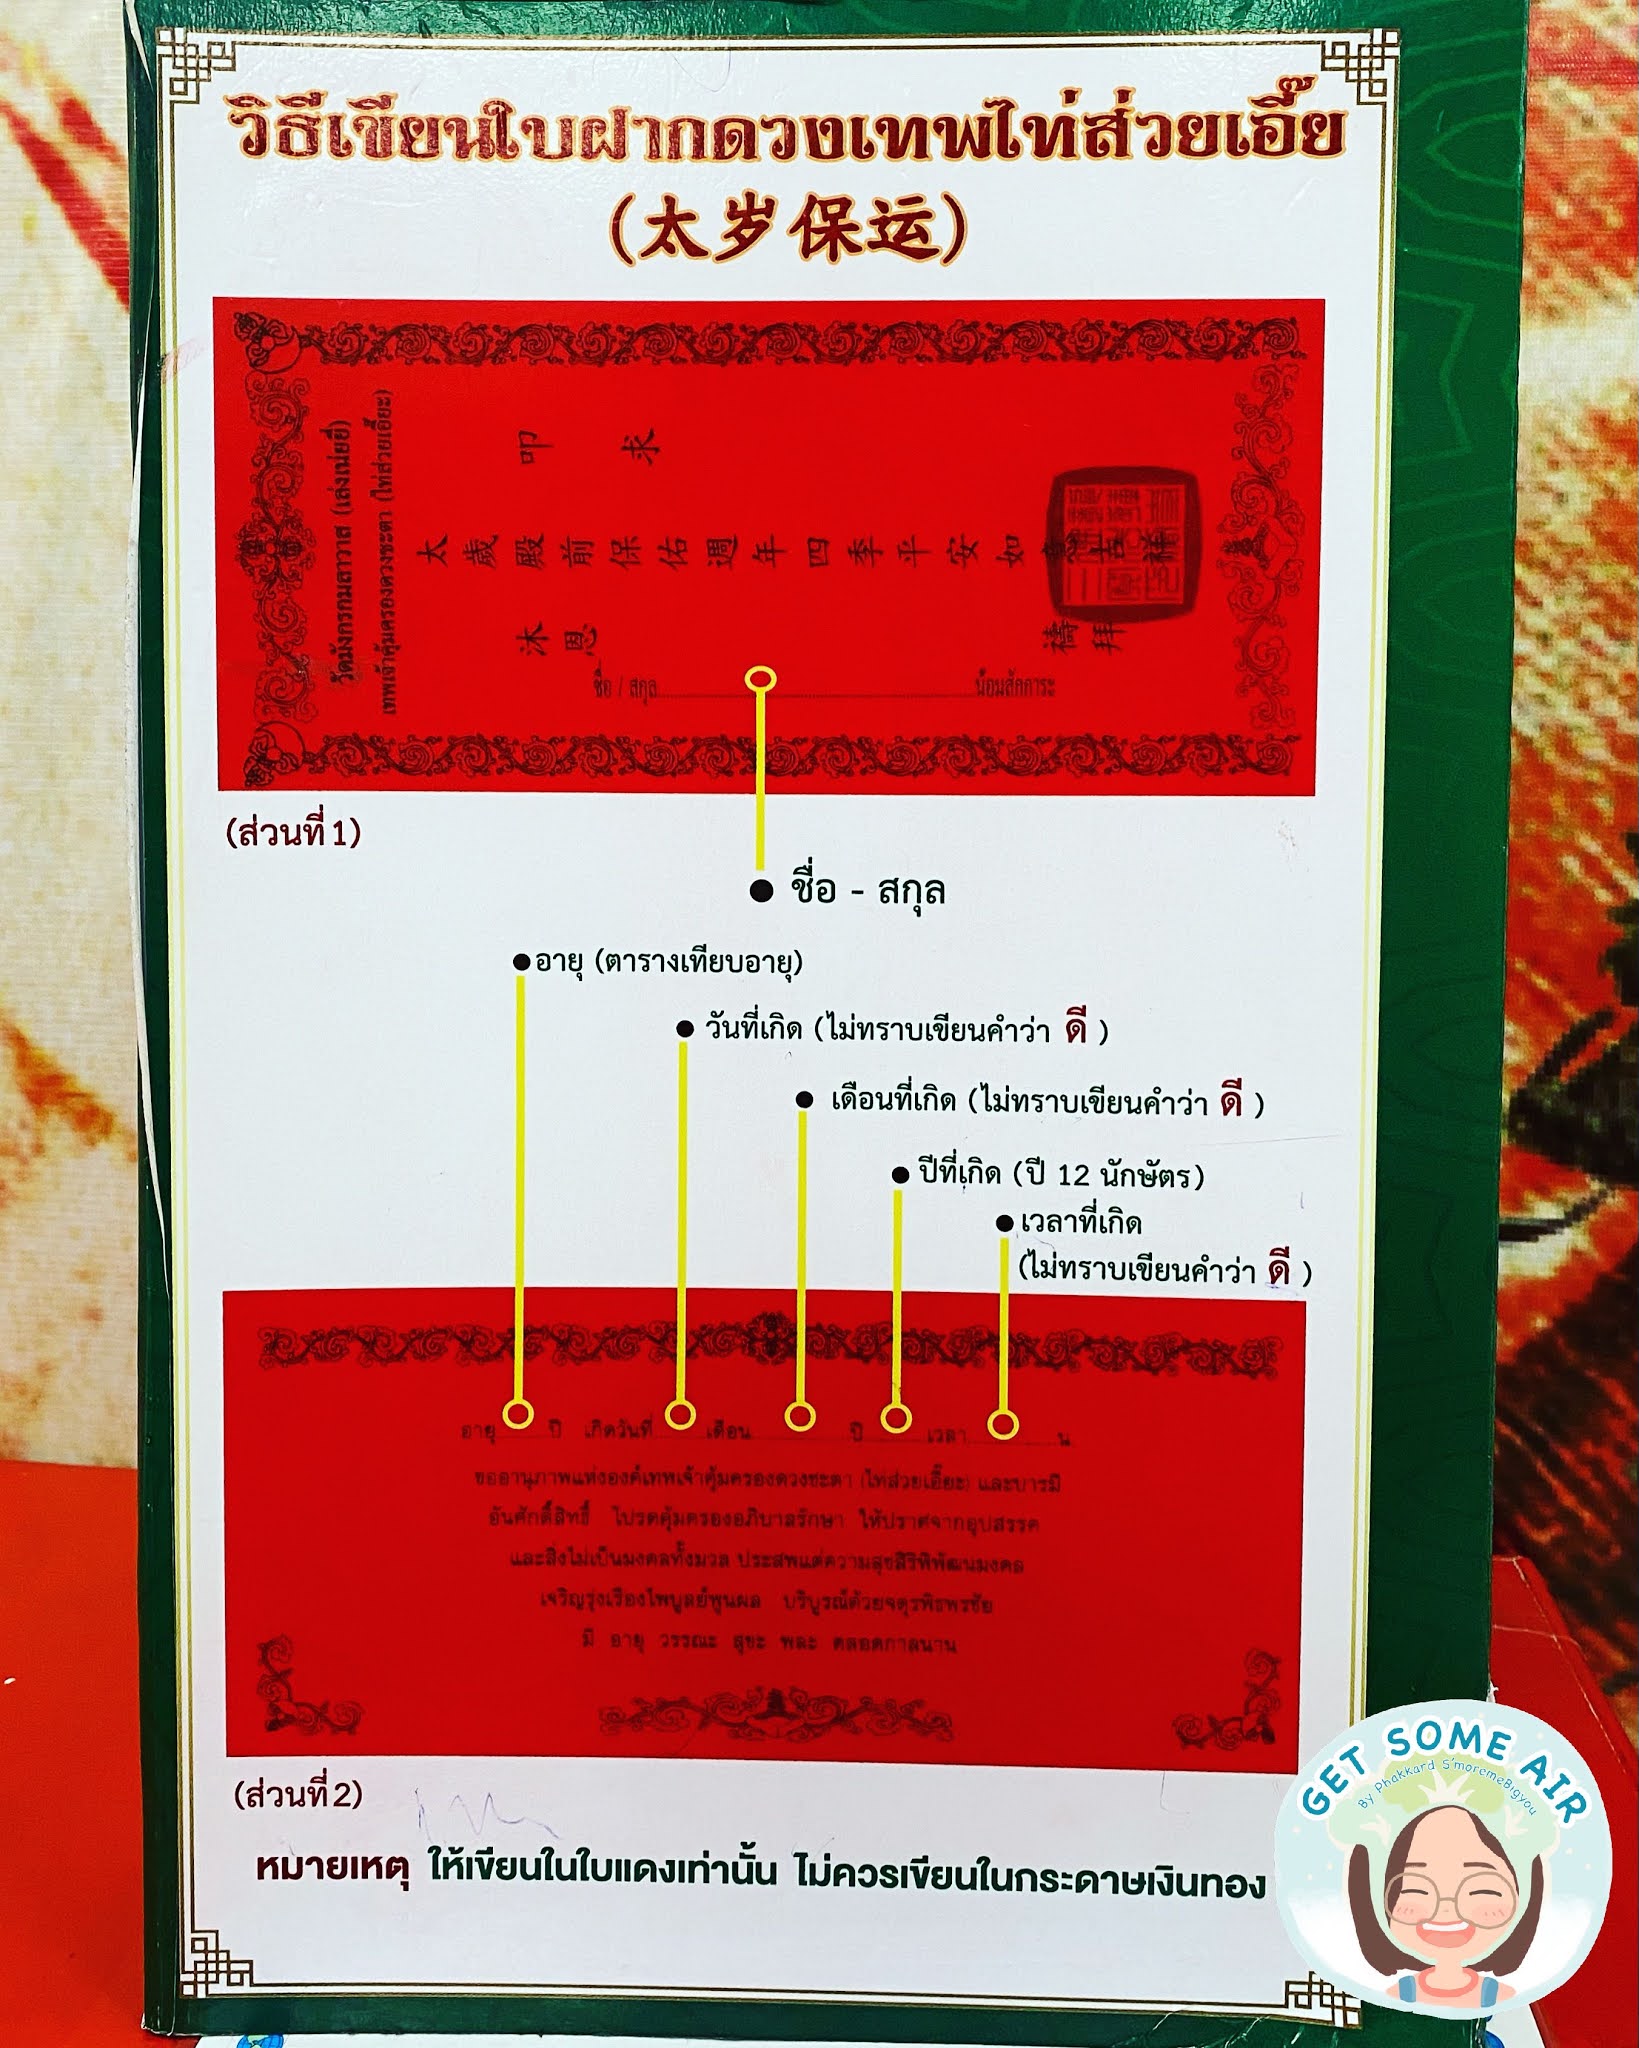 วิธีเขียนใบฝากดวงเทพไท่ส่วยเอี๊ย
(太岁保运)
วัดมังกรกมลาวาส (เล่งเน่ยยี่)
เทพเจ้าคุ้มครองดวงชะตา (ไท่ส่วยเอี๊ยะ)
叩 求
太歲殿前保佑週年四季平安如意吉祥
沐恩 禱拜
ชื่อ / สกุล น้อมสักการะ
(ส่วนที่ 1)
ชื่อ - สกุล
อายุ (ตารางเทียบอายุ)
วันที่เกิด (ไม่ทราบเขียนคำว่า ดี )
เดือนที่เกิด (ไม่ทราบเขียนคำว่า ดี )
ปีที่เกิด (ปี 12 นักษัตร)
เวลาที่เกิด
(ไม่ทราบเขียนคำว่า ดี )
อายุ ปี เกิดวันที่ เดือน ปี เวลา น
ขออานุภาพแห่งองค์เทพเจ้าคุ้มครองดวงชะตา (ไท่ส่วยเอี๊ยะ) และบารมี
อันศักดิ์สิทธิ์ โปรดคุ้มครองอภิบาลรักษา ให้ปราศจากอุปสรรค
และสิ่งไม่เป็นมงคลทั้งมวล ประสพแต่ความสุขสิริพิพัฒนมงคล
เจริญรุ่งเรืองไพบูลย์พูนผล บริบูรณ์ด้วยจตุรพิธพรชัย
มี อายุ วรรณะ สุขะ พละ ตลอดกาลนาน
(ส่วนที่ 2)
หมายเหตุ ให้เขียนในใบแดงเท่านั้น ไม่ควรเขียนในกระดาษเงินทอง
GET SOME AIR
By Phakkard S'moremeBigyou